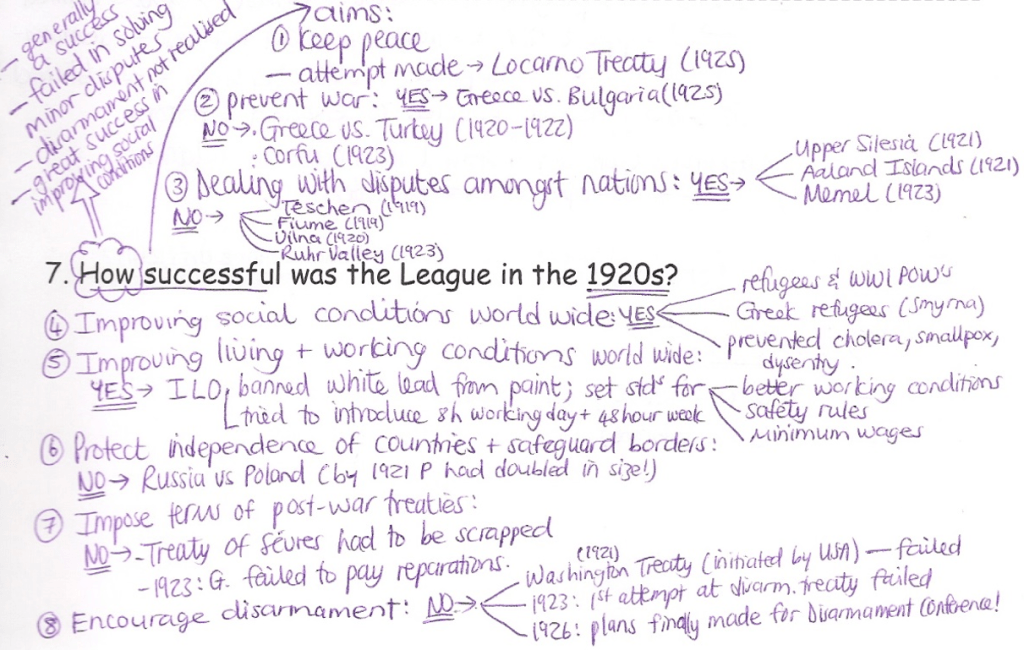 - generally
a success
- failed in solving
minor disputes
- disarmament not realised
- great success in
improving social
conditions
aims:
① keep peace
- attempt made → Locarno Treaty (1925)
② prevent war: YES → Greece vs. Bulgaria (1925)
NO → · Greece vs. Turkey (1920-1922)
· Corfu (1923)
③ Dealing with disputes amongst nations: YES →
Upper Silesia (1921)
Aaland Islands (1921)
Memel (1923)
NO →
Teschen (1919)
Fiume (1919)
Vilna (1920)
Ruhr Valley (1923)
7. How successful was the League in the 1920s?
④ Improving social conditions world wide: YES
refugees & WWI POW's
Greek refugees (Smyrna)
prevented cholera, smallpox,
dysentry.
⑤ Improving living + working conditions world wide:
YES → ILO, banned white lead from paint; set stds for
better working conditions
safety rules
minimum wages
tried to introduce 8h working day + 48 hour week
⑥ Protect independence of countries + safeguard borders:
NO → Russia vs Poland (by 1921 P had doubled in size!)
⑦ Impose terms of post-war treaties:
NO → - Treaty of Sèvres had to be scrapped
- 1923: G. failed to pay reparations.
⑧ Encourage disarmament: NO →
(1921)
Washington Treaty (initiated by USA) — failed
1923: 1st attempt at disarm. treaty failed
1926: plans finally made for Disarmament Conference!